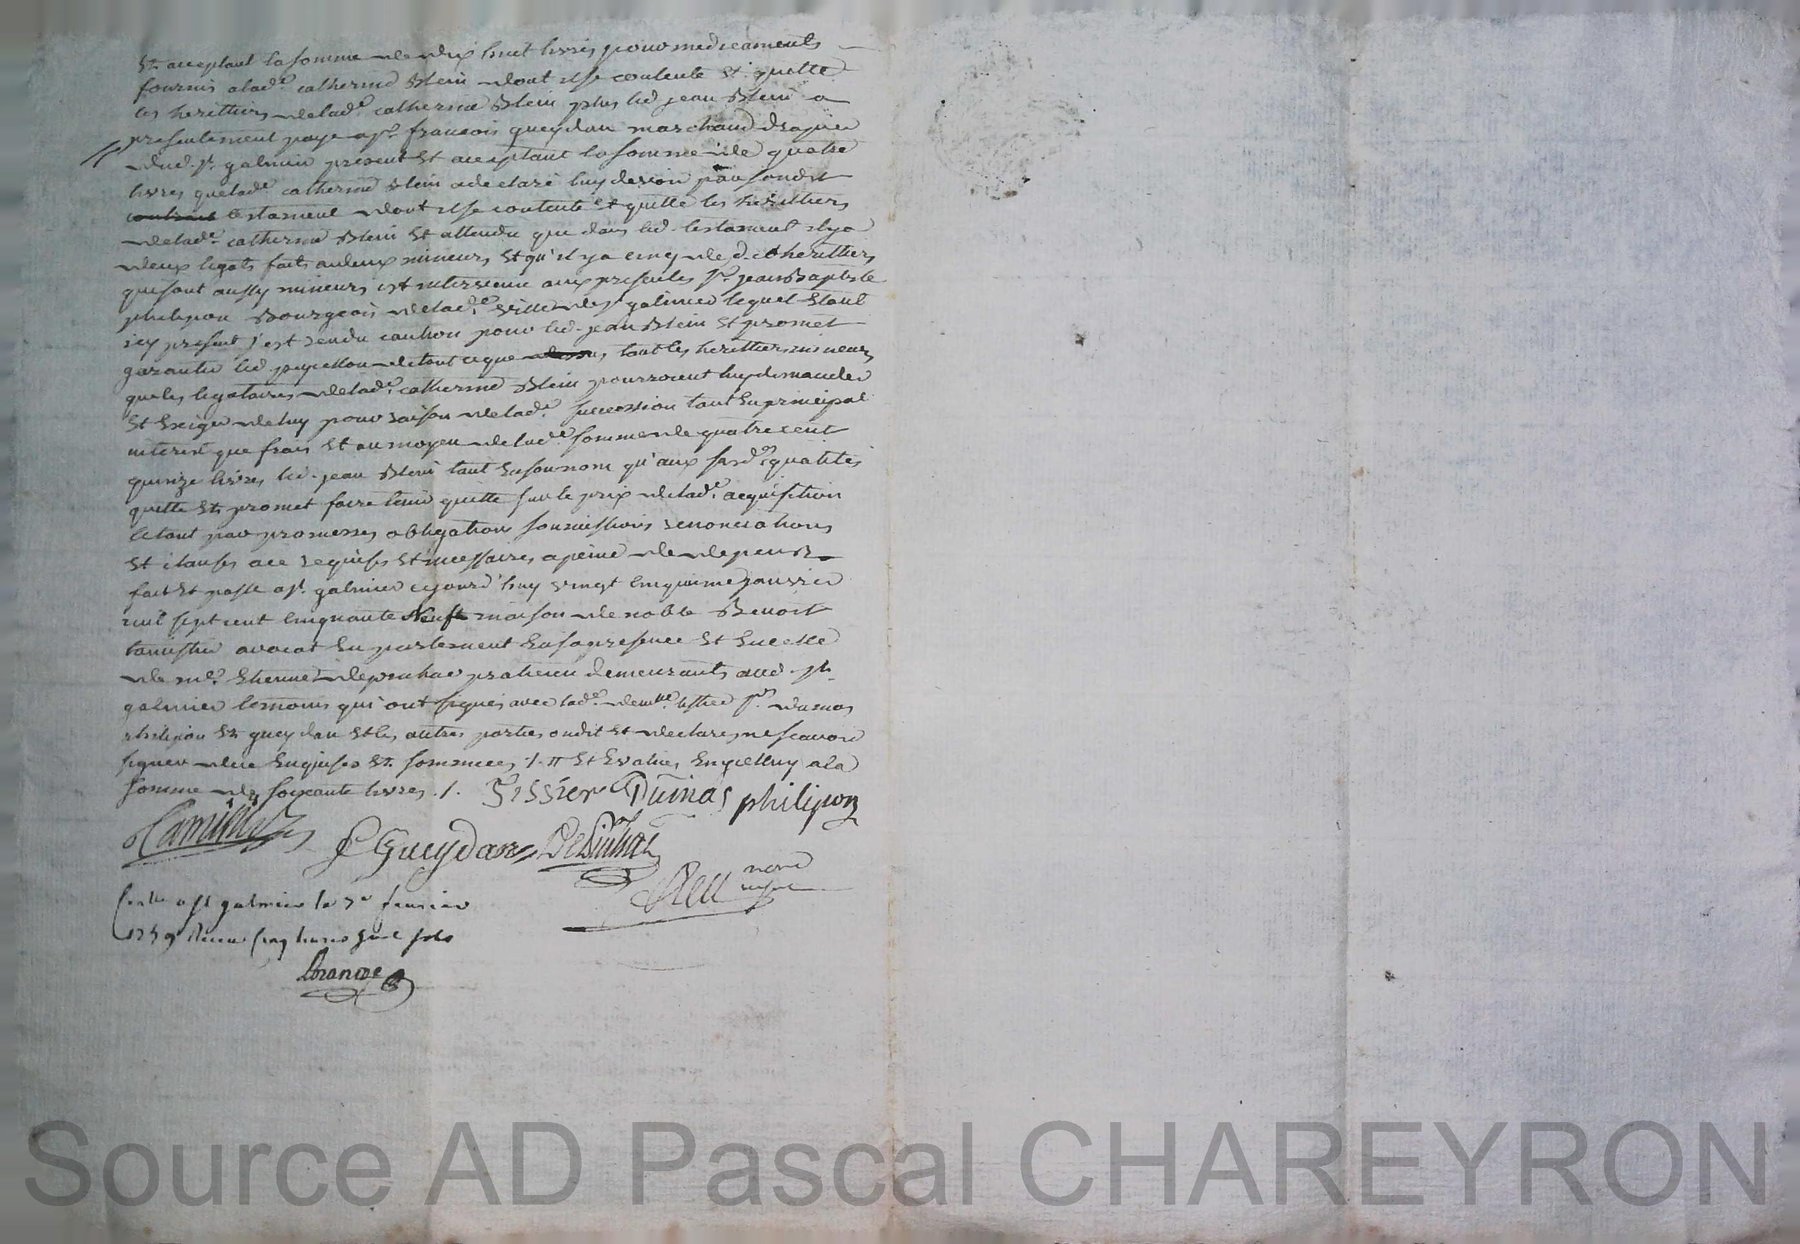 Et acceptant la somme de dix huit livres pour medicaments
fournis a lad.e catherine Blein dont il se contente Et quitte
les heritiers de lad.e catherine Blein plus led jean Blein a
presentement payé a s.r francois gueydan marchand drapier
dud. s.t galmier present Et acceptant la somme de quatre
livres que lad.e catherine Blein a declaré luy devoir par sondit
testament dont il se contente Et quitte les heritiers
de lad.e catherine Blein Et attendu que dans led. testament il y a
deux legats faits a deux mineurs Et qu'il y a cinq de d. heritiers
qui sont aussy mineurs est intervenu aux presentes s.r jean Baptiste
philipon Bourgeois de lad.e ville de s.t galmier lequel Etant
icy present s'est rendu caution pour led. jean Blein Et promet
garantir led de tout ce que tant les heritiers mineurs
que les legataires de lad.e catherine Blein pourroient luy demander
Et Exiger de luy pour raison de lad.e succession tant En principal
interest que frais Et au moyen de lad.e somme de quatre cent
quinze livres led. jean Blein tant En son nom qu'aux susd.es qualités
quitte Et promet faire tenir quitte sur le prix de lad.e acquisition
le tout par promesses obligations soumissions renonciations
Et clauses a ce requises Et necessaires a peine de depens
fait Et passé a s.t galmier cejourd'huy vingt cinquieme janvier
mil sept cent cinquante Neuf maison de noble Benoit
avocat En parlement En sa presence Et En celle
de m.e Etienne praticien demeurants aud. s.t
galmier temoins qui ont signés avec lad.e tissier s.rs dumas
philipon Et gueydan Et les autres parties ont dit Et declaré ne scavoir
signer de ce Enquises Et sommées ./. Et Evalué a la
somme de soixante livres ./. Tissier Dumas philipon
F Gueydan
not.
a st galmier le 7e fevrier
1759 Receu cinq livres sols